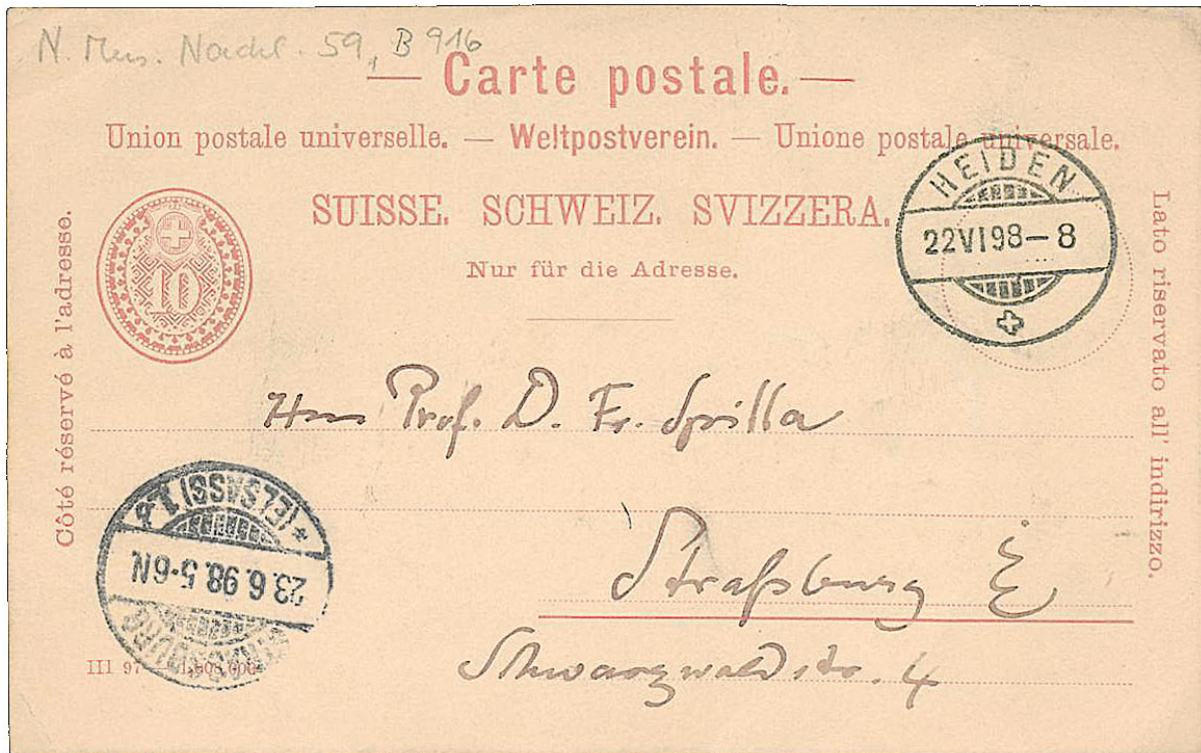 N. Mus. Nachl. 59, B 916
— Carte postale. —
Union postale universelle. — Weltpostverein. — Unione postale universale.
SUISSE. SCHWEIZ. SVIZZERA.
Nur für die Adresse.
Côté réservé à l'adresse.
Lato riservato all' indirizzo.
10
HEIDEN
22 VI 98 – 8
Herrn Prof. D. Fr. Spitta
Straßburg E
Schwarzwaldstr. 4
STRASSBURG
23.6.98.5-6N.
* (ELSASS) 1
III 97 —